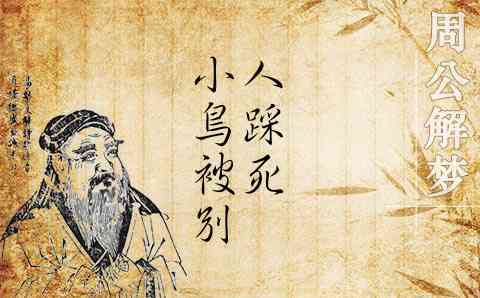 周公解梦
小鳥被别
人踩死